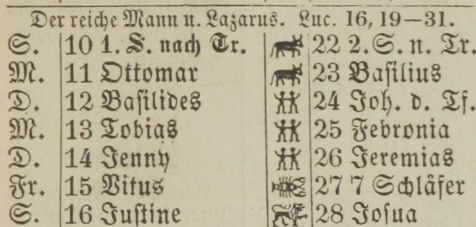 Der reiche Mann u. Lazarus. Luc. 16, 19—31.
S. 10 1. S. nach Tr. 22 2. S. n. Tr.
M. 11 Ottomar 23 Basilius
D. 12 Basilides 24 Joh. d. Tf.
M. 13 Tobias 25 Febronia
D. 14 Jenny 26 Jeremias
Fr. 15 Vitus 27 7 Schläfer
S. 16 Justine 28 Josua